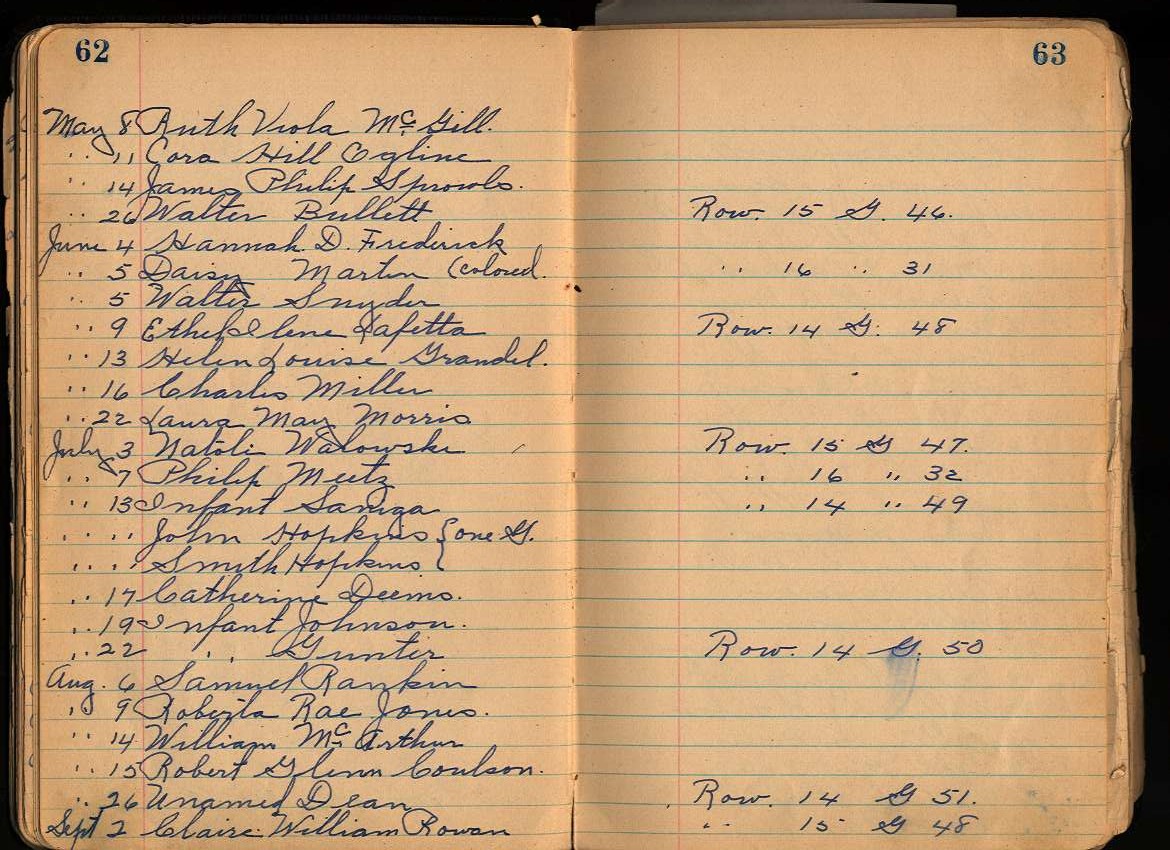 62
63
May 8 Ruth Viola McGill.
.. 11 Cora Hill Ogline
.. 14 James Philip Sprowls.
.. 26 Walter Bullett Row. 15 G. 46.
June 4 Hannah D. Frederick
.. 5 Daisy Martin (colored. .. 16 .. 31
.. 5 Walter Snyder
.. 9 Ethel Ilene Lafetta Row. 14 G. 48
.. 13 Helen Louise Grandel.
.. 16 Charles Miller
.. 22 Laura May Morris
July 3 Natoli Walowski Row. 15 G 47.
.. 7 Philip Meetz .. 16 " 32
.. 13 Infant Saniga .. 14 " 49
.. .. John Hopkins { one G.
.. .. Smith Hopkins {
.. 17 Catherine Deems.
.. 19 Infant Johnson.
.. 22 .. Gunter Row. 14 G. 50
Aug. 6 Samuel Rankin
.. 9 Roberta Rae Jones.
.. 14 William McArthur
.. 15 Robert Glenn Coulson.
.. 26 Unamed Dean Row. 14 G 51.
Sept 2 Claire William Rowan .. 15 G 48